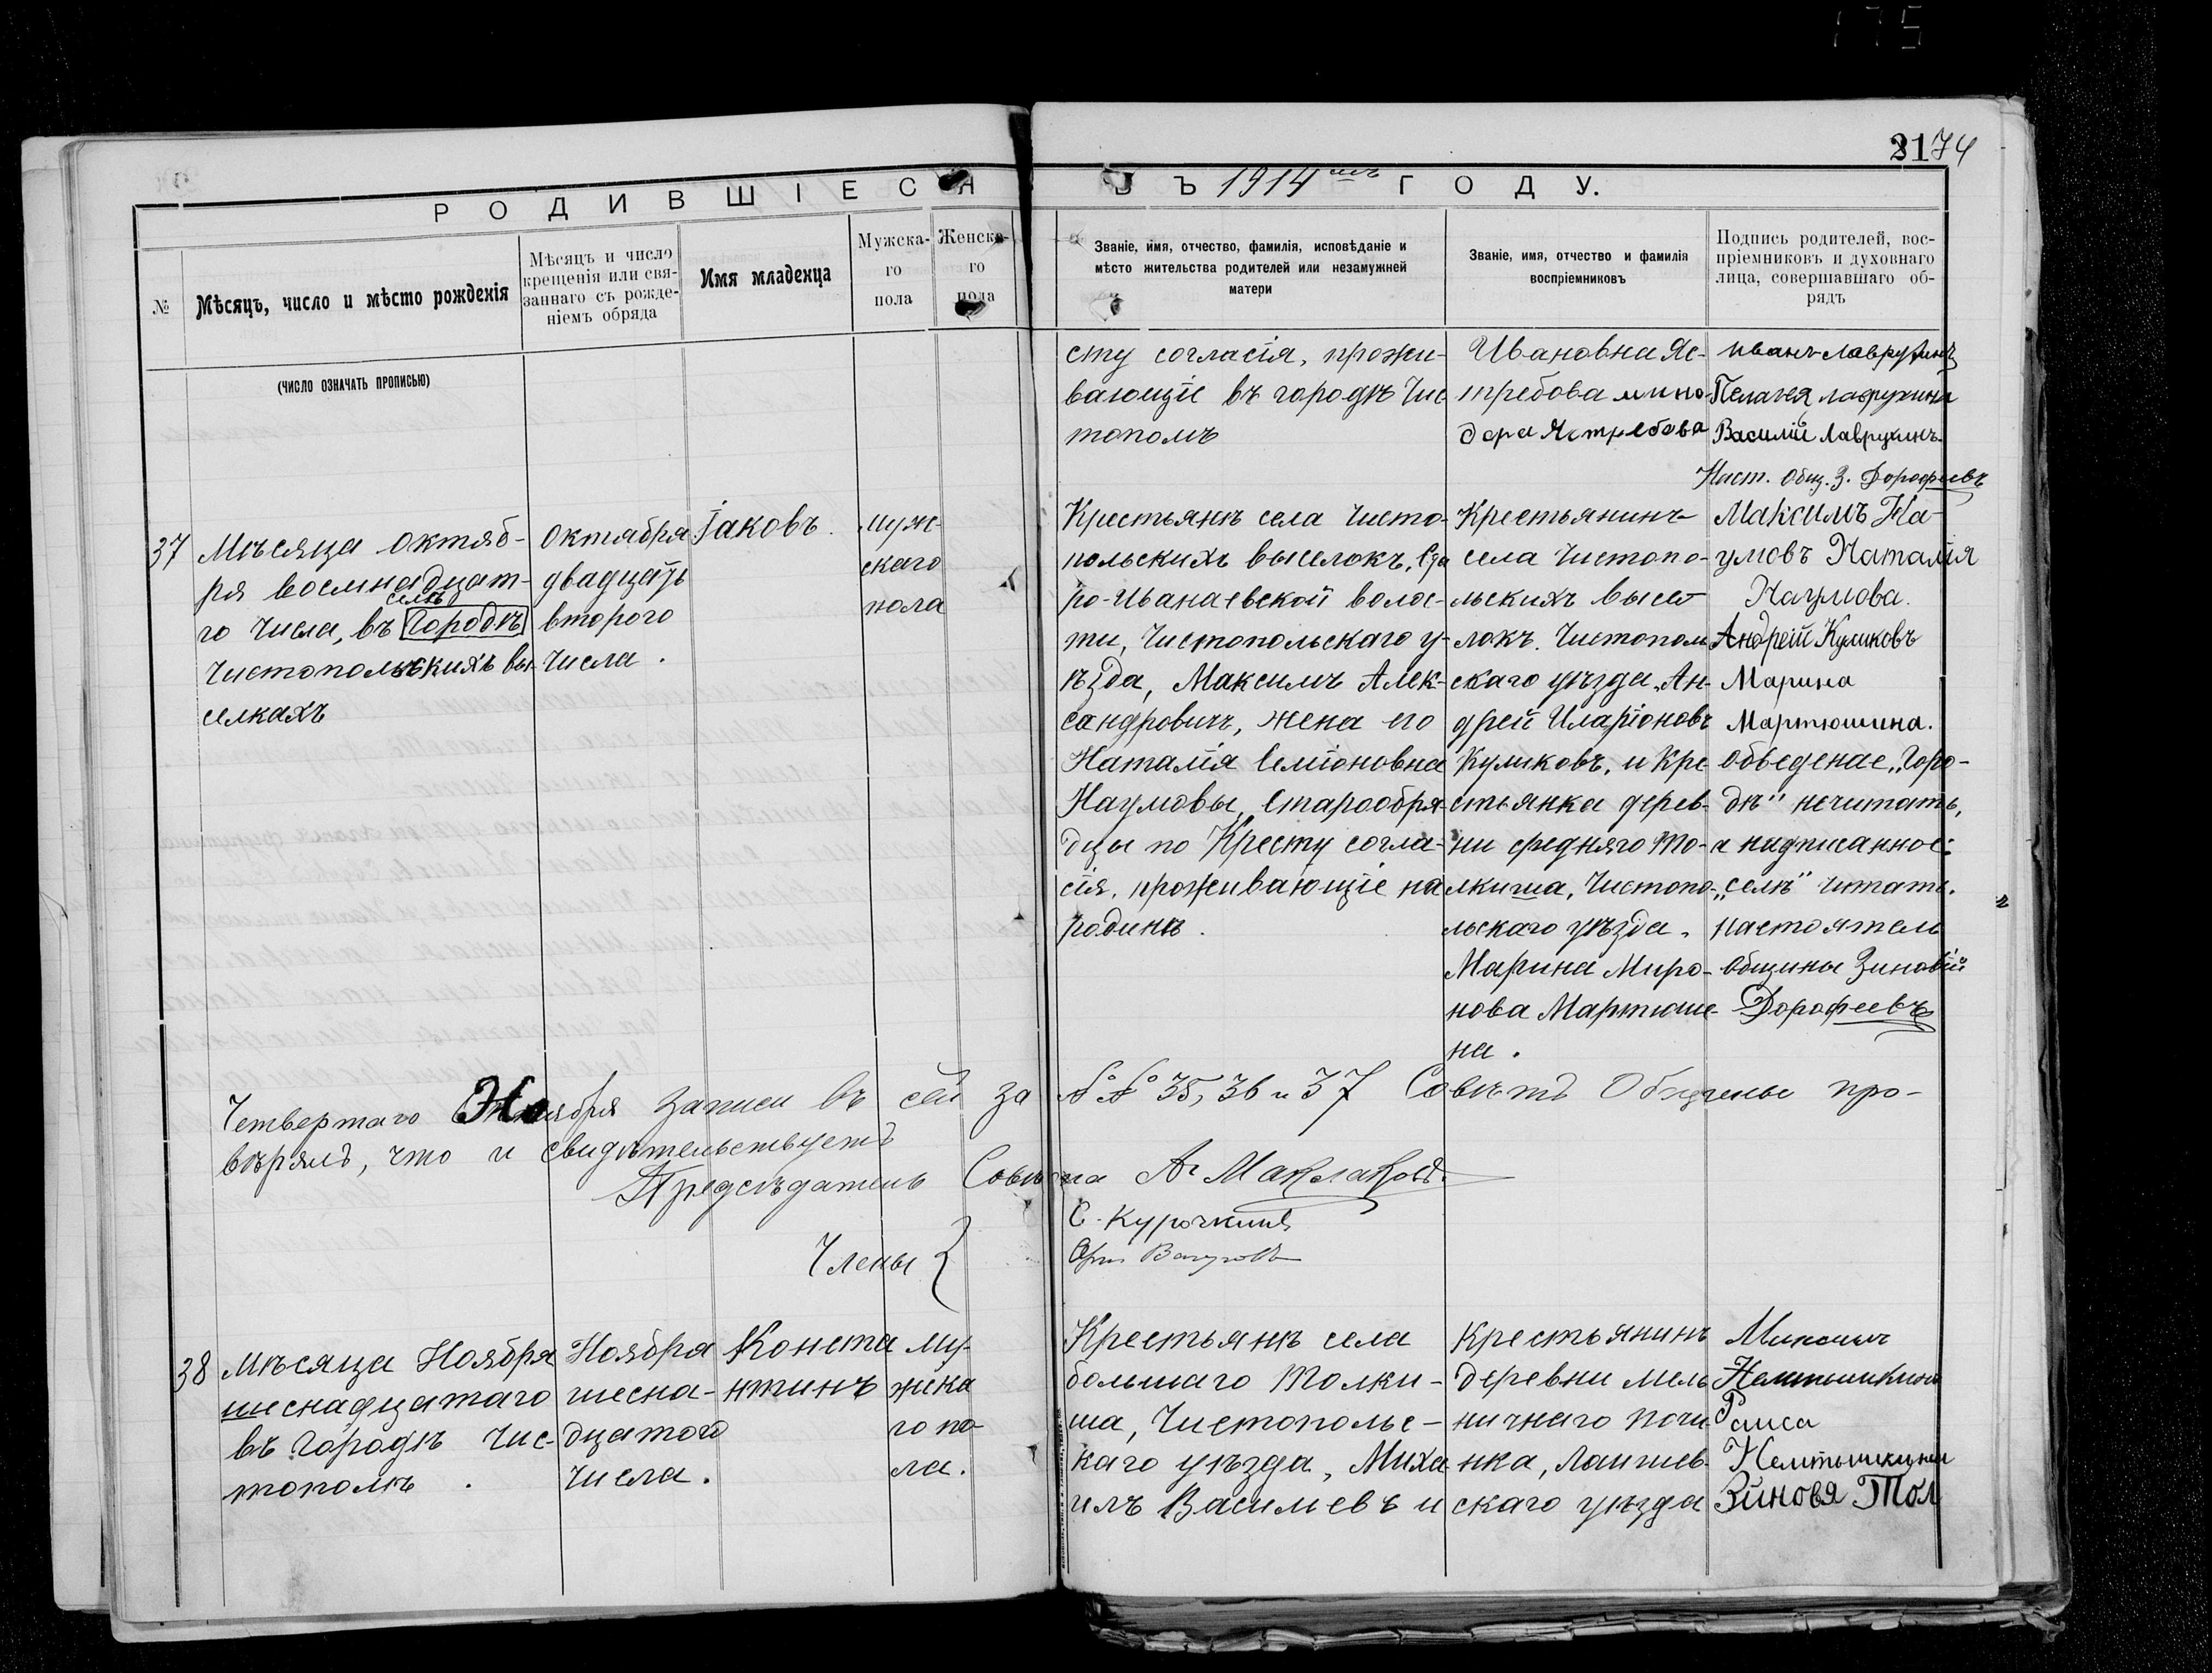 175
2174
РОДИВШІЕСЯ ВЪ 1914мъ ГОДУ.
№
Мѣсяцъ, число и мѣсто рожденія
(ЧИСЛО ОЗНАЧАТЬ ПРОПИСЬЮ)
Мѣсяцъ и число
крещенія или свя-
заннаго съ рожде-
ніемъ обряда
Имя младенца
Мужска-
го
пола
Женска-
го
пола
Званіе, имя, отчество, фамилія, исповѣданіе и
мѣсто жительства родителей или незамужней
матери
Званіе, имя, отчество и фамилія
воспріемниковъ
Подпись родителей, вос-
пріемниковъ и духовнаго
лица, совершавшаго об-
рядъ
сту согласія, прожи-
вающіе въ городѣ Чис
тополѣ
Ивановна Яс-
требова
Ястребова
иванъ лаврухинъ
Пелагея лаврухина
Василій Лаврухинъ
Наст. Общ. З. Дорофеевъ
37
Мѣсяца октяб-
ря восмнадцат-
селѣ
го числа, въ Городѣ
Чистопольскихъ вы-
селкахъ
октября
двадцать
второго
числа.
Іаковъ.
муж-
скаго
пола
Крестьянѣ села Чисто-
польскихъ выселокъ, Ста
ро-Иванаевской волос-
ти, Чистопольскаго у-
ѣзда, Максимъ Алек-
сандровичъ, жена его
Наталія Семіоновна
Наумовы, Старообря-
дцы по Кресту согла-
сія, проживающіе на
родинѣ.
Крестьянинъ
села Чистопо-
льскихъ высе-
локъ. Чистопол
скаго уѣзда, Ан-
дрей Иларіоновъ
Куликовъ, и Кре
стьянка дерев-
ни средняго То-
лкиша, Чистопо-
льскаго уѣзда.
Марина Миро-
нова Мартюше-
на.
Максимъ На-
умовъ Наталія
Наумова.
Андрей Куликовъ
Марина
Мартюшина.
Обведеное „Горо-
дѣ" нечитать,
а надписанное:
„селѣ" читать.
настоятель
Общины Зиновій
Дорофеевъ
Четвертаго Ноября записи въ сей за №№ 35, 36 и 37 Совѣтъ Общины про-
вѣрялъ, что и свидѣтельствуетъ
Предсѣдатель Совѣта А. Маклаковъ
Члены {
С. Курочкинъ
38
Мѣсяца Ноября
шеснадцатаго
въ городѣ Чис-
тополѣ.
Ноября
шесна-
дцатого
числа.
Конста
нтинъ
му-
жска
го по-
ла.
Крестьянѣ села
большаго Толки-
ша, Чистопольс-
каго уѣзда, Миха
илъ Васильевъ и
Крестьянинъ
деревни мель
ничнаго почи-
нка, Лаишев-
скаго уѣзда
Раиса
Зиновя Тол